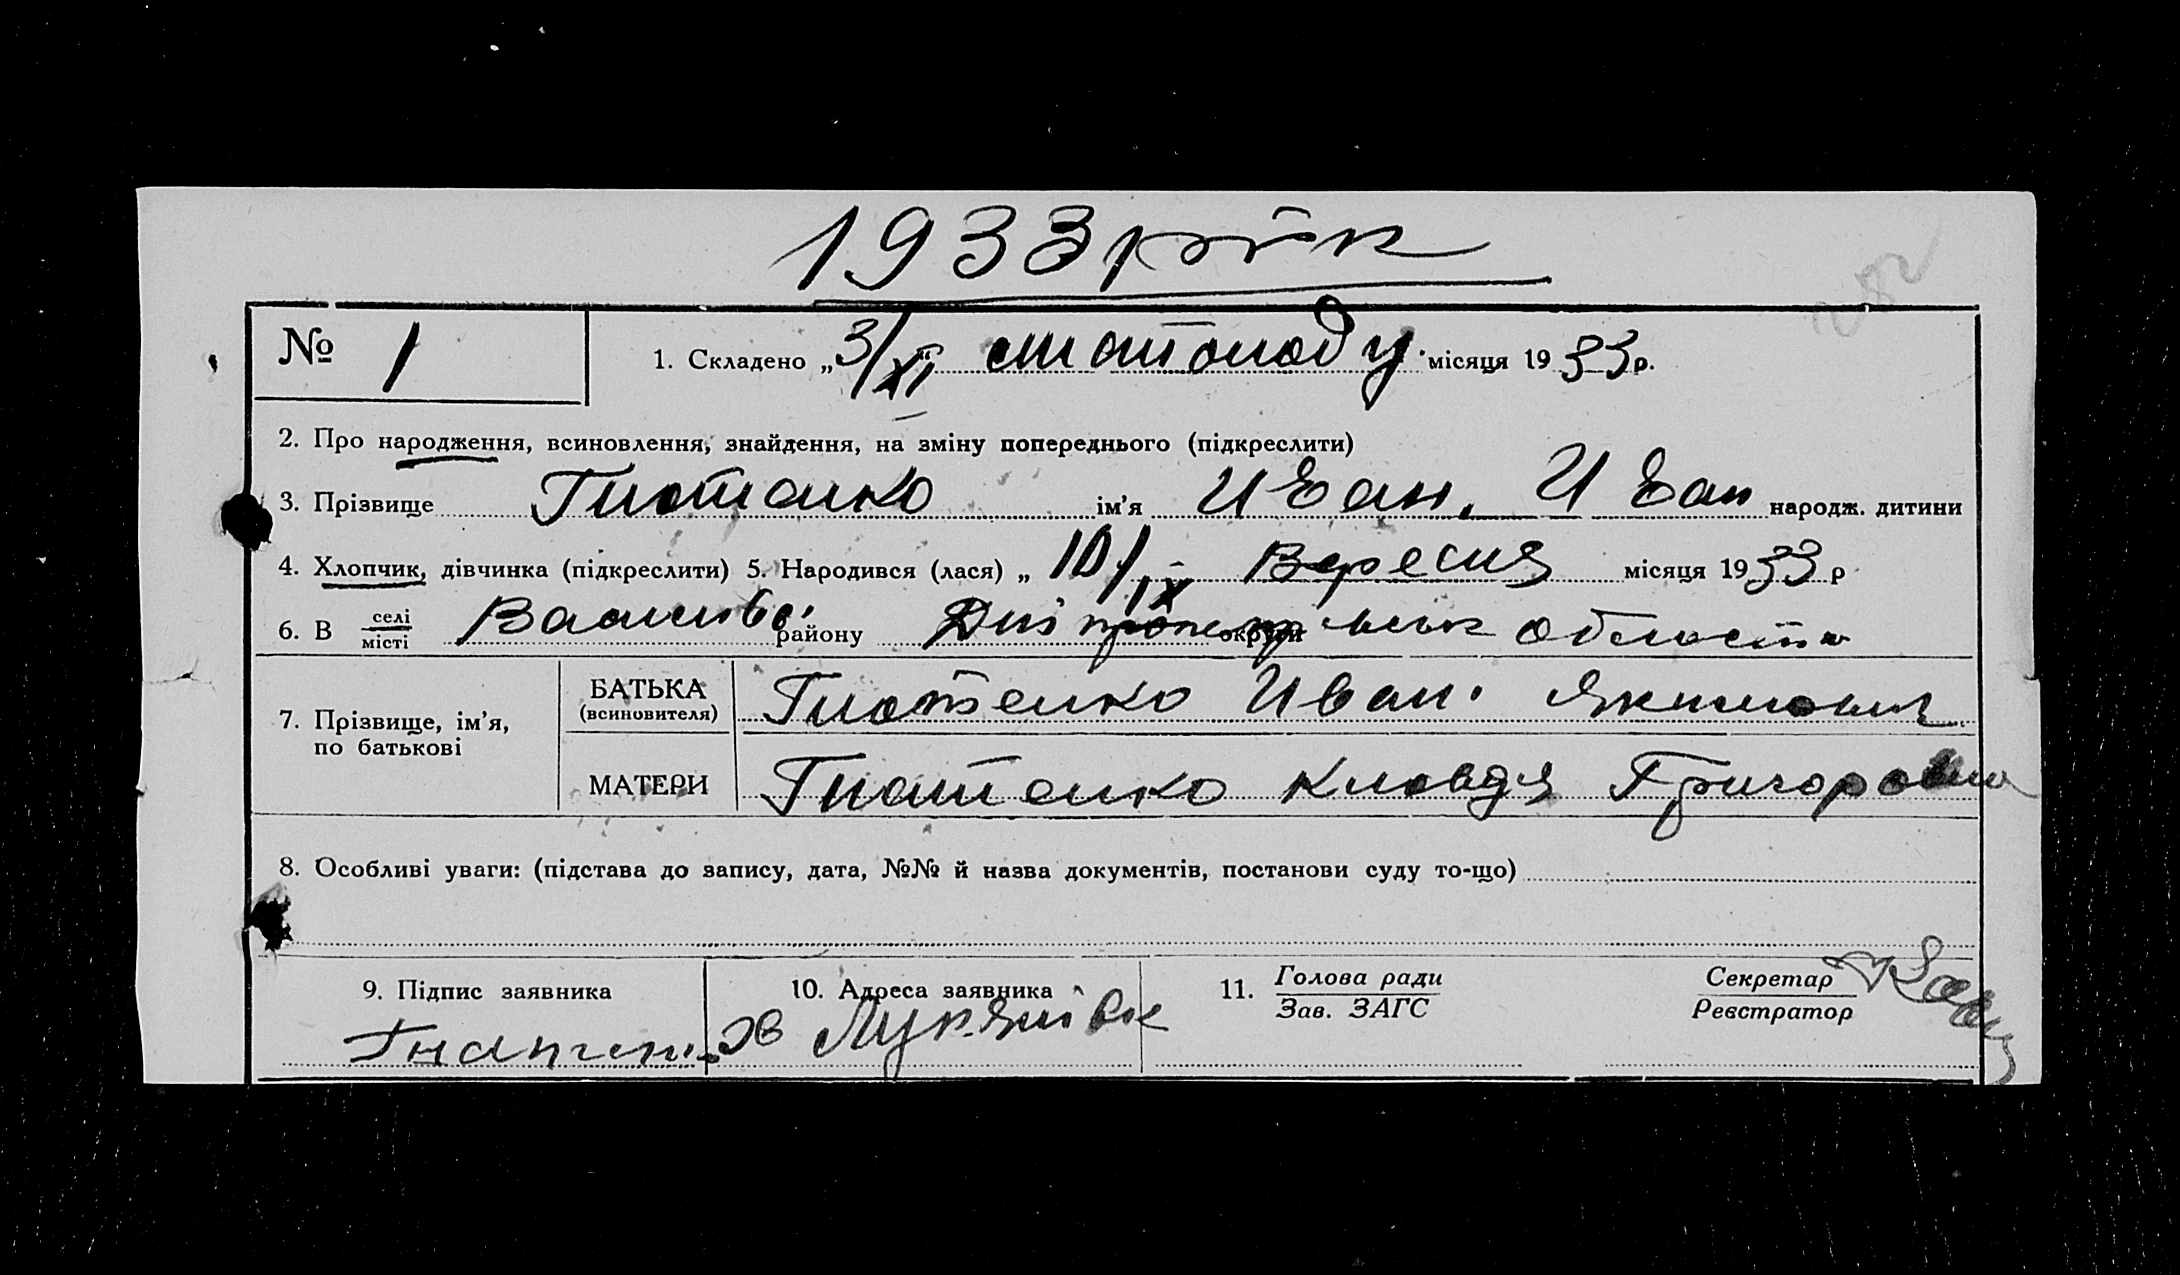 1933 рік
№ 1
1. Складено „3/XI" листопаду місяця 1933 р.
2. Про народження, всиновлення, знайдення, на зміну попереднього (підкреслити)
3. Прізвище Гнатенко ім'я Иван, Иван народж. дитини
4. Хлопчик, дівчинка (підкреслити) 5. Народився (лася) „10/IX Вересня місяця 1933 р
6. В селі місті району округи области
7. Прізвище, ім'я, по батькові
БАТЬКА (всиновителя) Гнатенко Иван
МАТЕРИ Гнатенко Клавдя Григоровна
8. Особливі уваги: (підстава до запису, дата, №№ й назва документів, постанови суду то-що)
9. Підпис заявника
10. Адреса заявника
11. Голова ради
Зав. ЗАГС
Секретар
Реєстратор